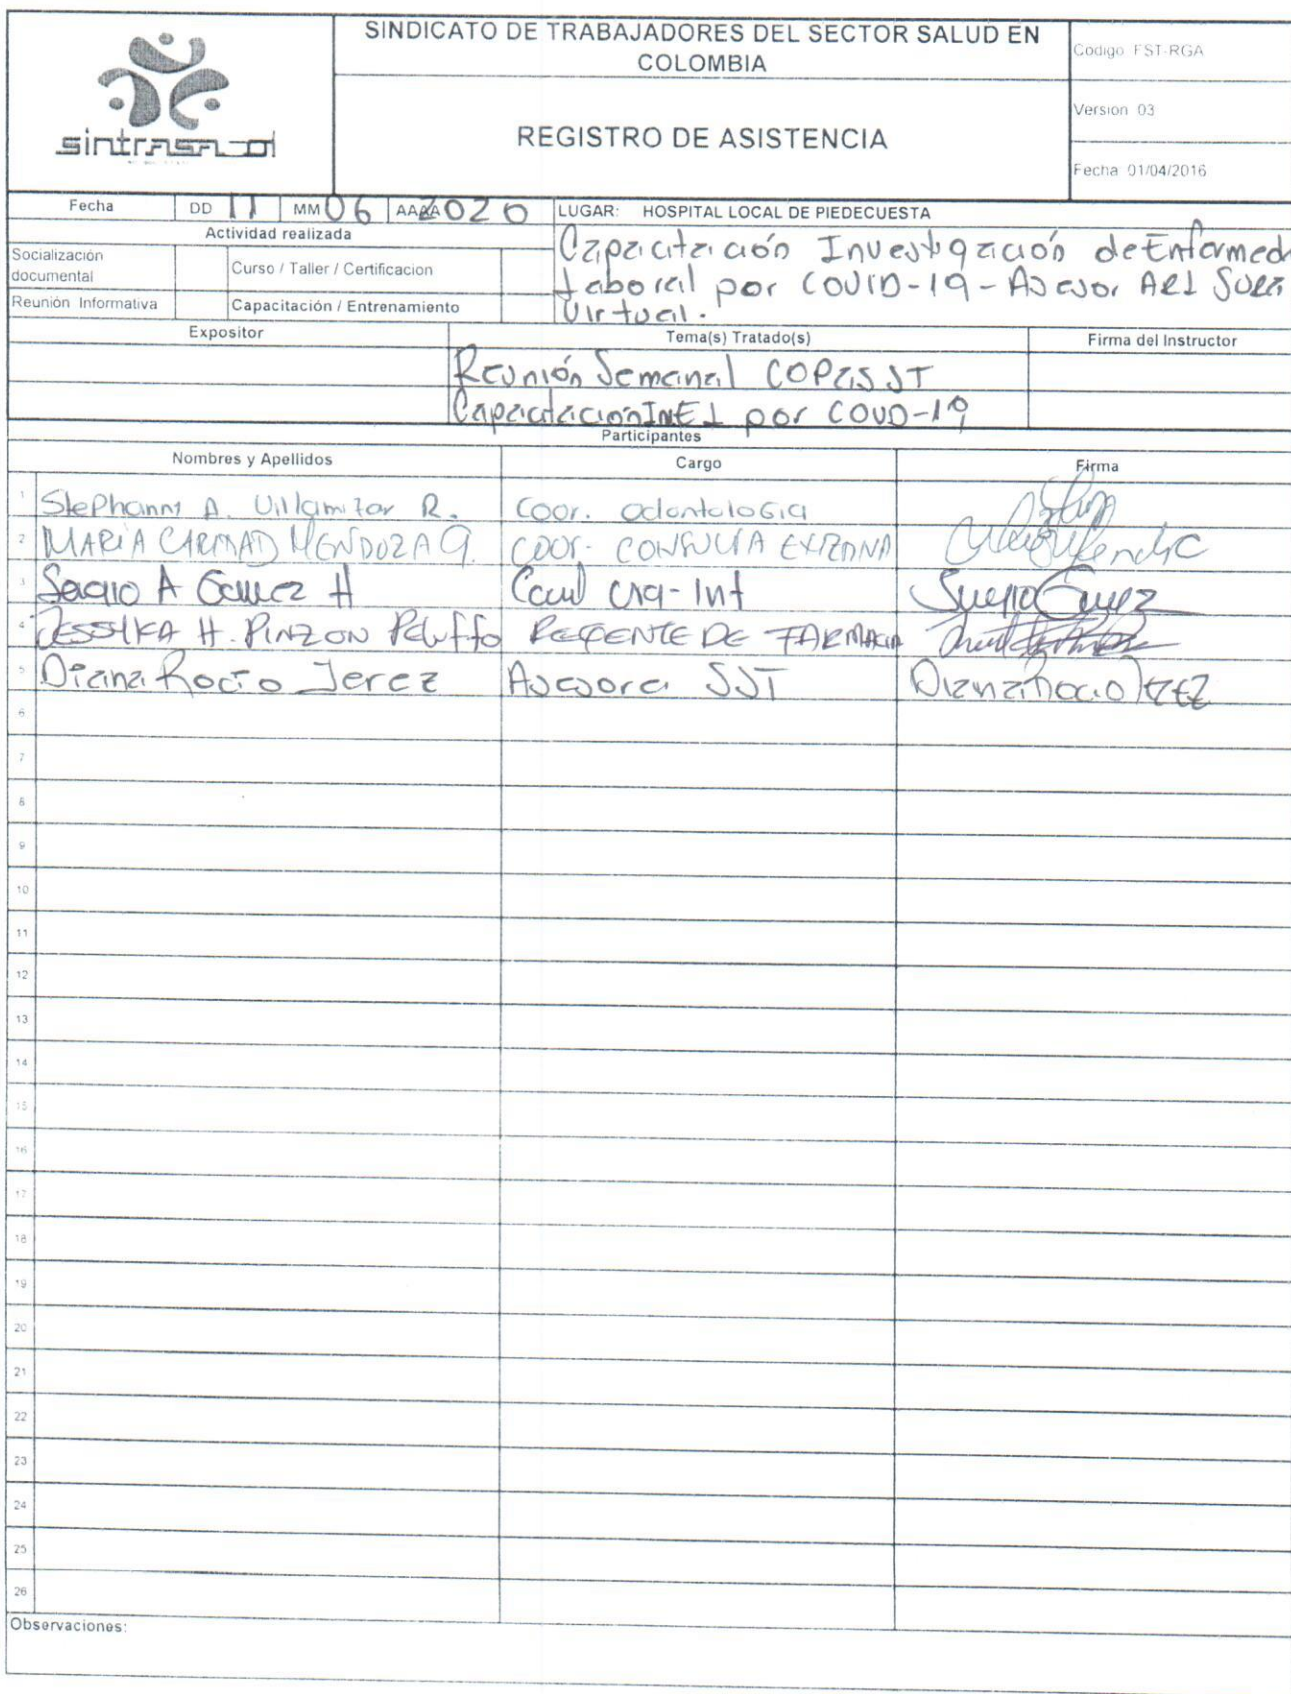 sintrasalud
SINDICATO DE TRABAJADORES DEL SECTOR SALUD EN
COLOMBIA
REGISTRO DE ASISTENCIA
Codigo FST-RGA
Version 03
Fecha 01/04/2016
Fecha DD 11 MM 06 AAAA 2020 LUGAR: HOSPITAL LOCAL DE PIEDECUESTA
Actividad realizada
Socialización
documental
Curso / Taller / Certificacion
Reunión Informativa
Capacitación / Entrenamiento
Capacitación Investigación de Enfermed
Laboral por COVID-19 - Asesor ARL Sura
Virtual.
Expositor Tema(s) Tratado(s) Firma del Instructor
Reunión Semanal COPASST
Capacitacion InEL por COVD-19
Participantes
Nombres y Apellidos Cargo Firma
1 Stephanny A. Villamizar R. Coor. odontologia
2 MARIA CARMAD MENDOZA G. COOR. CONSULTA EXTERNA
3 Sergio A Gamez H Cog-Int
4 JESSIKA H. PINZON Peluffo REGENTE DE FARMACIA
5 Diana Rocio Jerez Asesora SST Diana Rocio Jerez
6
7
8
9
10
11
12
13
14
15
16
17
18
19
20
21
22
23
24
25
26
Observaciones: